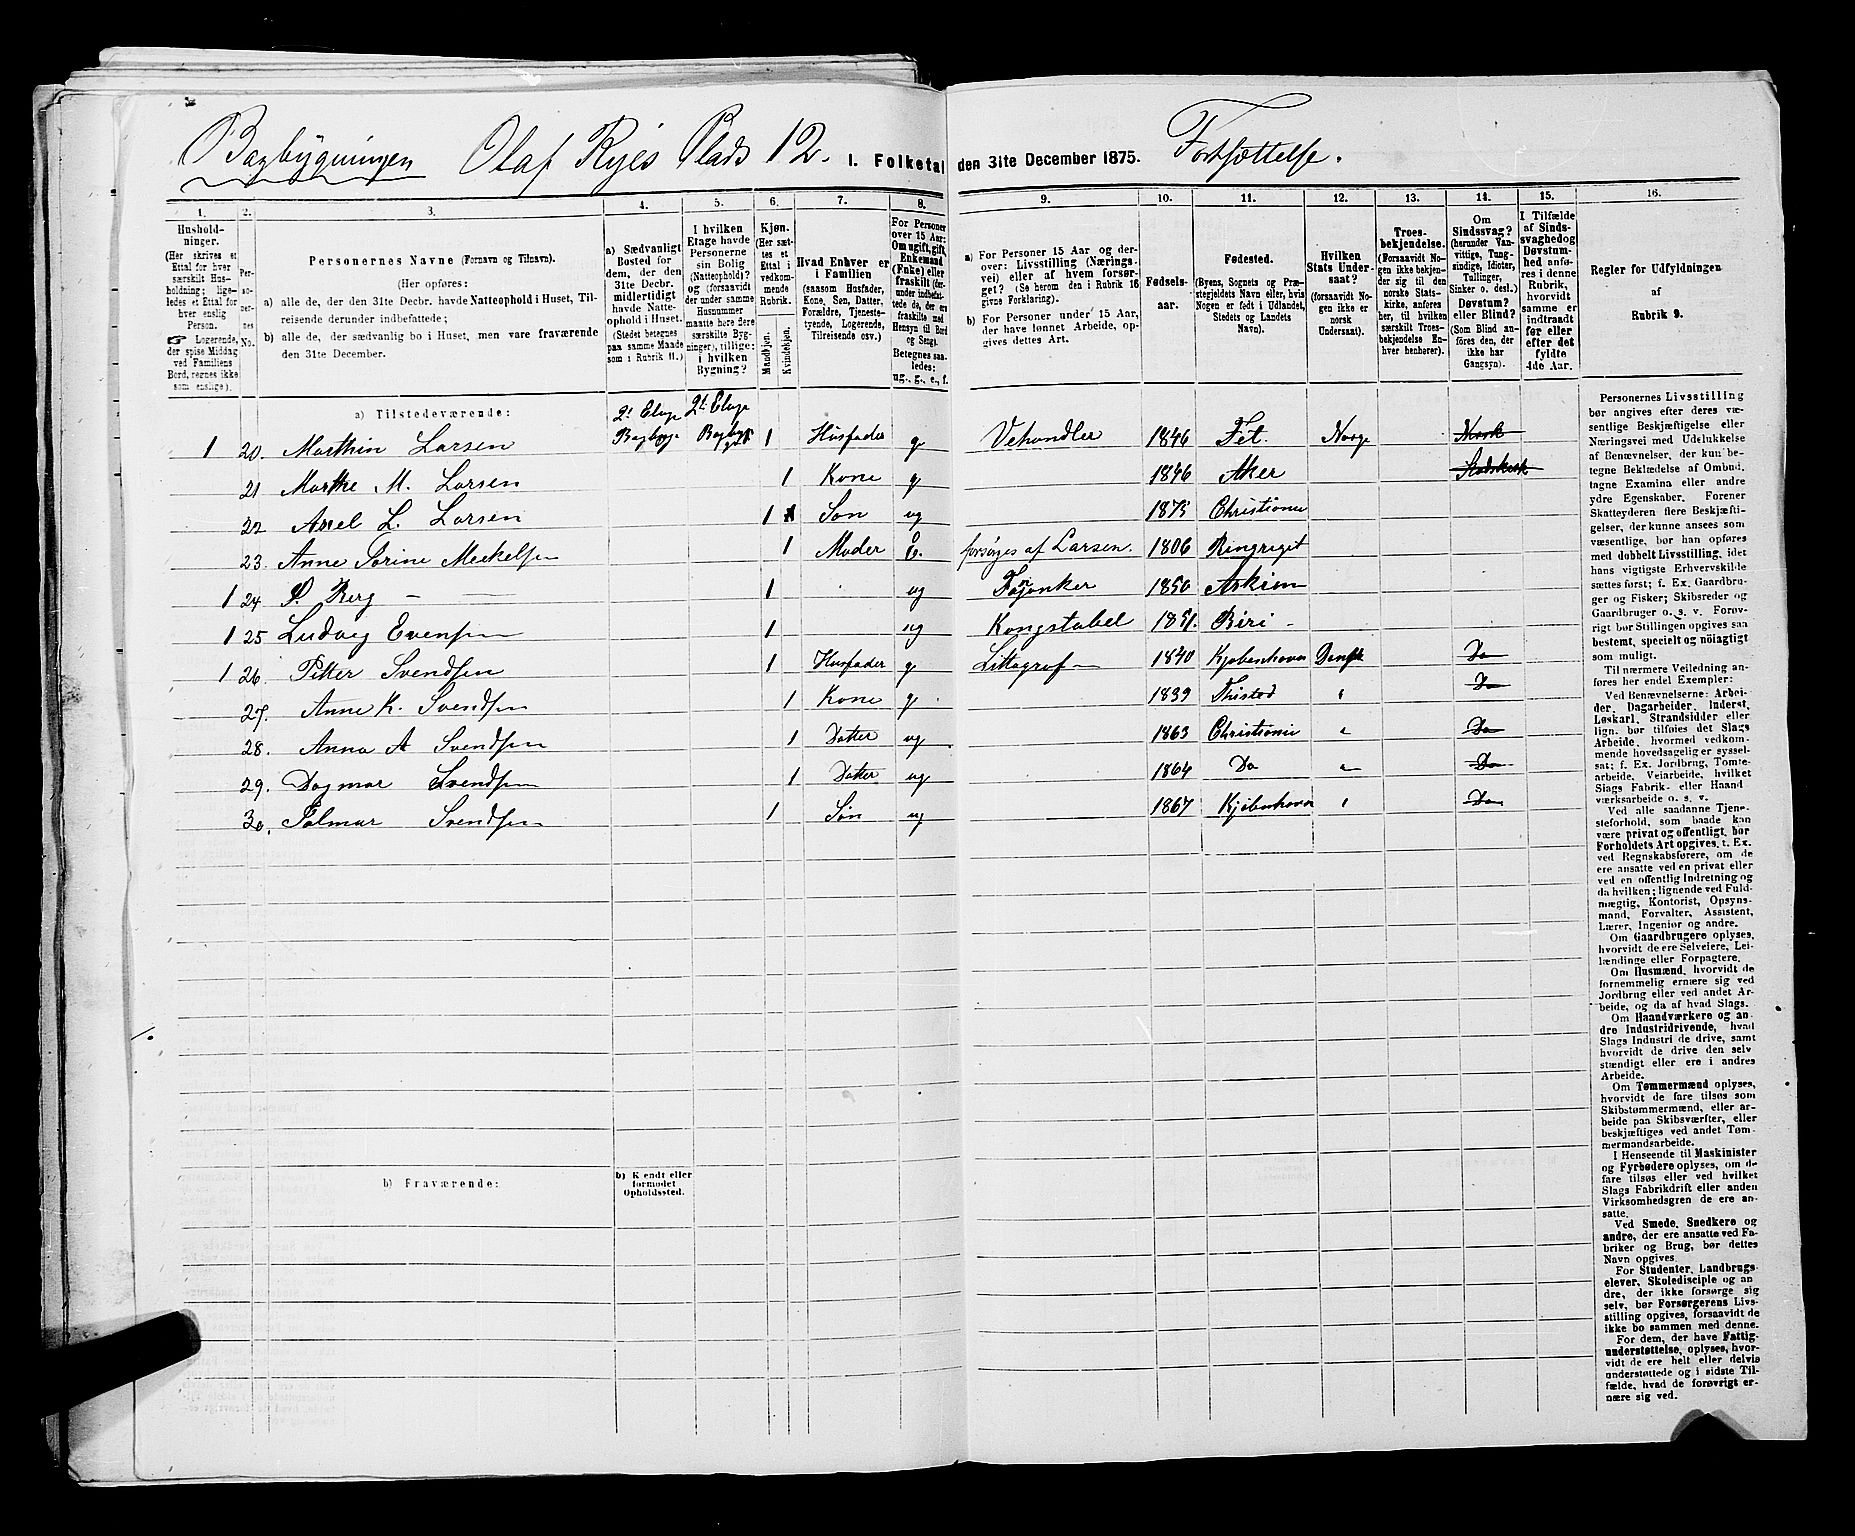 Bagbygningen Olaf Ryes Plads 12. I. Folketal den 31te December 1875. Fortsættelse.
1. 2. 3. 4. 5. 6. 7. 8. 9. 10. 11. 12. 13. 14. 15. 16.
Hushold-
ninger.
(Her skrives et
Ettal for hver
særskilt Hus-
holdning; lige-
ledes et Ettal for
hver enslig
Person.
☞ Logerende,
der spise Middag
ved Familiens
Bord, regnes ikke
som enslige).
Per-
so-
ner-
nes
No.
Personernes Navne (Fornavn og Tilnavn).
(Her opføres:
a) alle de, der den 31te Decbr. havde Natteophold i Huset, Til-
reisende derunder indbefattede;
b) alle de, der sædvanlig bo i Huset, men vare fraværende
den 31te December.
a) Sædvanligt
Bosted for
dem, der den
31te Decbr.
midlertidigt
havde Natte-
ophold i Huset.
(Stedet betegnes
paa samme Maade
som i Rubrik 11.)
I hvilken
Etage havde
Personerne
sin Bolig
(Natteophold)?
og (forsaavidt
der under samme
Husnummer
maatte høre flere
særskilte Byg-
ninger), tillige:
i hvilken
Bygning?
Kjøn.
(Her sæt-
tes et
Ettal i
vedkom-
mende
Rubrik.
Mandkjøn.
Kvindekjøn.
Hvad Enhver er
i Familien
(saasom Husfader,
Kone, Søn, Datter,
Forældre, Tjeneste-
tyende, Logerende,
Tilreisende osv.)
For Personer
over 15 Aar:
Om ugift, gift,
Enkemand
(Enke) eller
fraskilt (der-
under indbefat-
tede de, der ere
fraskilte med
Hensyn til Bord
og Seng).
Betegnes saa-
ledes:
ug., g., e., f.
a) For Personer 15 Aar og der-
over: Livsstilling (Nærings-
vei) eller af hvem forsør-
get? (Se herom den i Rubrik 16
givne Forklaring).
b) For Personer under 15 Aar,
der have lønnet Arbeide, op-
gives dettes Art.
Fødsels-
aar.
Fødested.
(Byens, Sognets og Præ-
stegjeldets Navn eller, hvis
Nogen er født i Udlandet,
Stedets og Landets
Navn).
Hvilken
Stats Under-
saat?
(forsaavidt No-
gen ikke er
norsk
Undersaat).
Troes-
bekjendelse.
(Forsaavidt No-
gen ikke bekjen-
der sig til den
norske Stats-
kirke, anføres
her, til hvilken
særskilt Troes-
bekjendelse En-
hver henhører).
Om
Sindssvag?
(herunder Van-
vittige, Tung-
sindige, Idioter,
Tullinger,
Sinker o. desl.)
Døvstum?
eller Blind?
(Som Blind an-
føres den, der
ikke har
Gangsyn).
I Tilfælde
af Sinds-
svaghed og
Døvstum-
hed anfø-
res i denne
Rubrik,
hvorvidt
samme er
indtraadt
før eller
efter det
fyldte
4de Aar.
Regler for Udfyldningen
af
Rubrik 9.
a) Tilstedeværende:
1 20. Marthin Larsen 2. Etage Bagbyg. 2. Etage Bagbyg. 1 Husfader g. Vehandler 1846 Fet. Norge Norsk
21 Marthe M. Larsen 1 Kone g. 1846 Aker Statskirk
22 Axel L. Larsen 1 Søn ug 1873 Christiania
23. Anne Torine Meekelsen 1 Moder e. forsørges af Larsen. 1806 Ringriget
1 24 P. Berg — 1 ug 1850 Askim
1 25 Ludvig Evensen 1 ug Kongstabel 1851. Biri –
1 26. Petter Svendsen 1 Husfader g. Littograf 1840 Kjøbenhavn Dansk Do
27. Anne K. Svendsen 1 Kone g. 1839 Thisted " Do
28. Anna A Svendsen 1 Datter ug 1863 Christiania " Do
29. Dagmar Svendsen 1 Datter ug. 1864 Do " Do
30. Valmar Svendsen 1 Søn ug 1867 Kjøbenhavn " Do
b) Fraværende:
b) Kjendt eller
formodet
Opholdssted.
Personernes Livsstilling
bør angives efter deres væ-
sentlige Beskjæftigelse eller
Næringsvei med Udelukkelse
af Benævnelser, der kun be-
tegne Beklædelse af Ombud,
tagne Examina eller andre
ydre Egenskaber. Forener
Skatteyderen flere Beskjæfti-
gelser, der kunne ansees som
væsentlige, bør han opføres
med dobbelt Livsstilling, idet
hans vigtigste Erhvervskilde
sættes først; f. Ex. Gaardbru-
ger og Fisker; Skibsreder og
Gaardbruger o. s. v. Forøv-
rigt bør Stillingen opgives saa
bestemt, specielt og nøiagtigt
som muligt.
Til nærmere Veiledning an-
føres her endel Exempler:
Ved Benævnelserne: Arbei-
der, Dagarbeider, Inderst,
Løskarl, Strandsidder eller
lign. bør tilføies det Slags
Arbeide, hvormed vedkom-
mende hovedsagelig er syssel-
sat; f. Ex. Jordbrug, Tomte-
arbeide, Veiarbeide, hvilket
Slags Fabrik- eller Haand
værksarbeide o. s. v.
Ved alle saadanne Tjene-
steforhold, som baade kan
være privat og offentligt, bør
Forholdets Art opgives, t. Ex.
ved Regnskabsførere, om de
ere ansatte ved en privat eller
ved en offentlig Indretning og
da hvilken; lignende ved Fuld-
mægtig, Kontorist, Opsyns-
mand, Forvalter, Assistent,
Lærer, Ingeniør og andre.
Om Gaardbrugere oplyses,
hvorvidt de ere Selveiere, Lei-
lændinge eller Forpagtere.
Om Husmænd, hvorvidt de
fornemmelig ernære sig ved
Jordbrug eller ved andet Ar-
beide, og da af hvad Slags.
Om Haandværkere og an-
dre Industridrivende, hvad
Slags Industri de drive, samt
hvorvidt de drive den selv
stændigt eller ere i andres
Arbeide.
Om Tømmermænd oplyses,
hvorvidt de fare tilsøs som
Skibstømmermænd, eller ar-
beide paa Skibsværfter, eller
beskjæftiges ved andet Tøm-
mermandsarbeide.
I Henseende til Maskinister
og Fyrbødere oplyses, om de
fare tilsøs eller ved hvilket
Slags Fabrikdrift eller anden
Virksomhedsgren de ere an-
satte.
Ved Smede, Snedkere og
andre, der ere ansatte ved Fa-
briker og Brug, bør dettes
Navn opgives.
For Studenter, Landbrugs-
elever, Skoledisciple og an-
dre, der ikke forsørge sig
selv, bør Forsørgerens Livs-
stilling opgives, forsaavidt de
ikke bo sammen med denne.
For dem, der have Fattig-
understøttelse, oplyses, hvor-
vidt de ere helt eller delvis
understøttede og i sidste Til-
fælde, hvad de forøvrigt er-
nære sig ved.